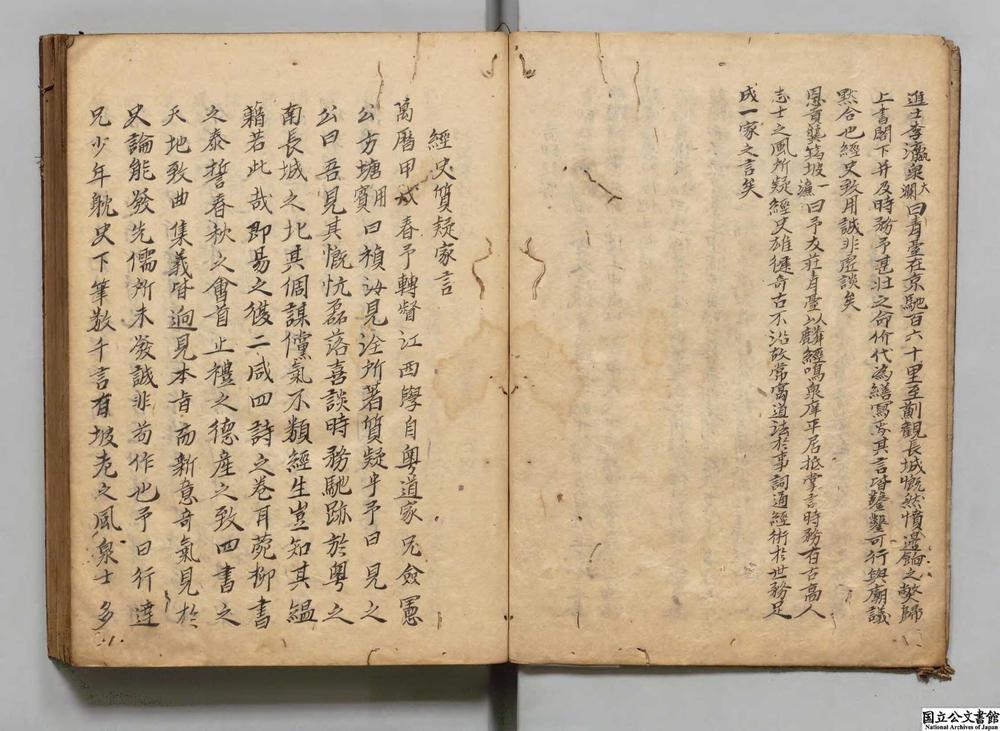 進士李瀛泉大瀾曰青臺在京馳百六十里至薊觀長城慨然憤邊餉之㢢歸
上書閣下并及時務予甚壯之命价代為繕寫焉其言皆鑿鑿可行與廟議
黙合也經史致用誠非虛談矣
恩貢龔篤坡一濂曰予友莊青臺以麟經鳴泉庠平居抵掌言時務有古高人
志士之風所疑經史雄健奇古不沿故常寓道法於事詞通經術於世務足
成一家之言矣
經史質疑家言
萬曆甲戌春予轉督江西學自粵道家兄僉憲
公方塘用賓曰積海見洤所著質疑乎予曰見之
公曰吾見其慨忼磊落喜談時務馳跡於粵之
南長城之北其倜謀儻氣不類經生豈知其緼
藉若此哉即易之復二咸四詩之卷耳菀柳書
之泰誓春秋之會首止禮之德產之致四書之
天地致曲集義皆逈見本旨而新意奇氣見於
史論能發先儒所未發誠非苟作也予曰行達
兄少年躭史下筆數千言有坡老之風泉士多
国立公文書館
National Archives of Japan